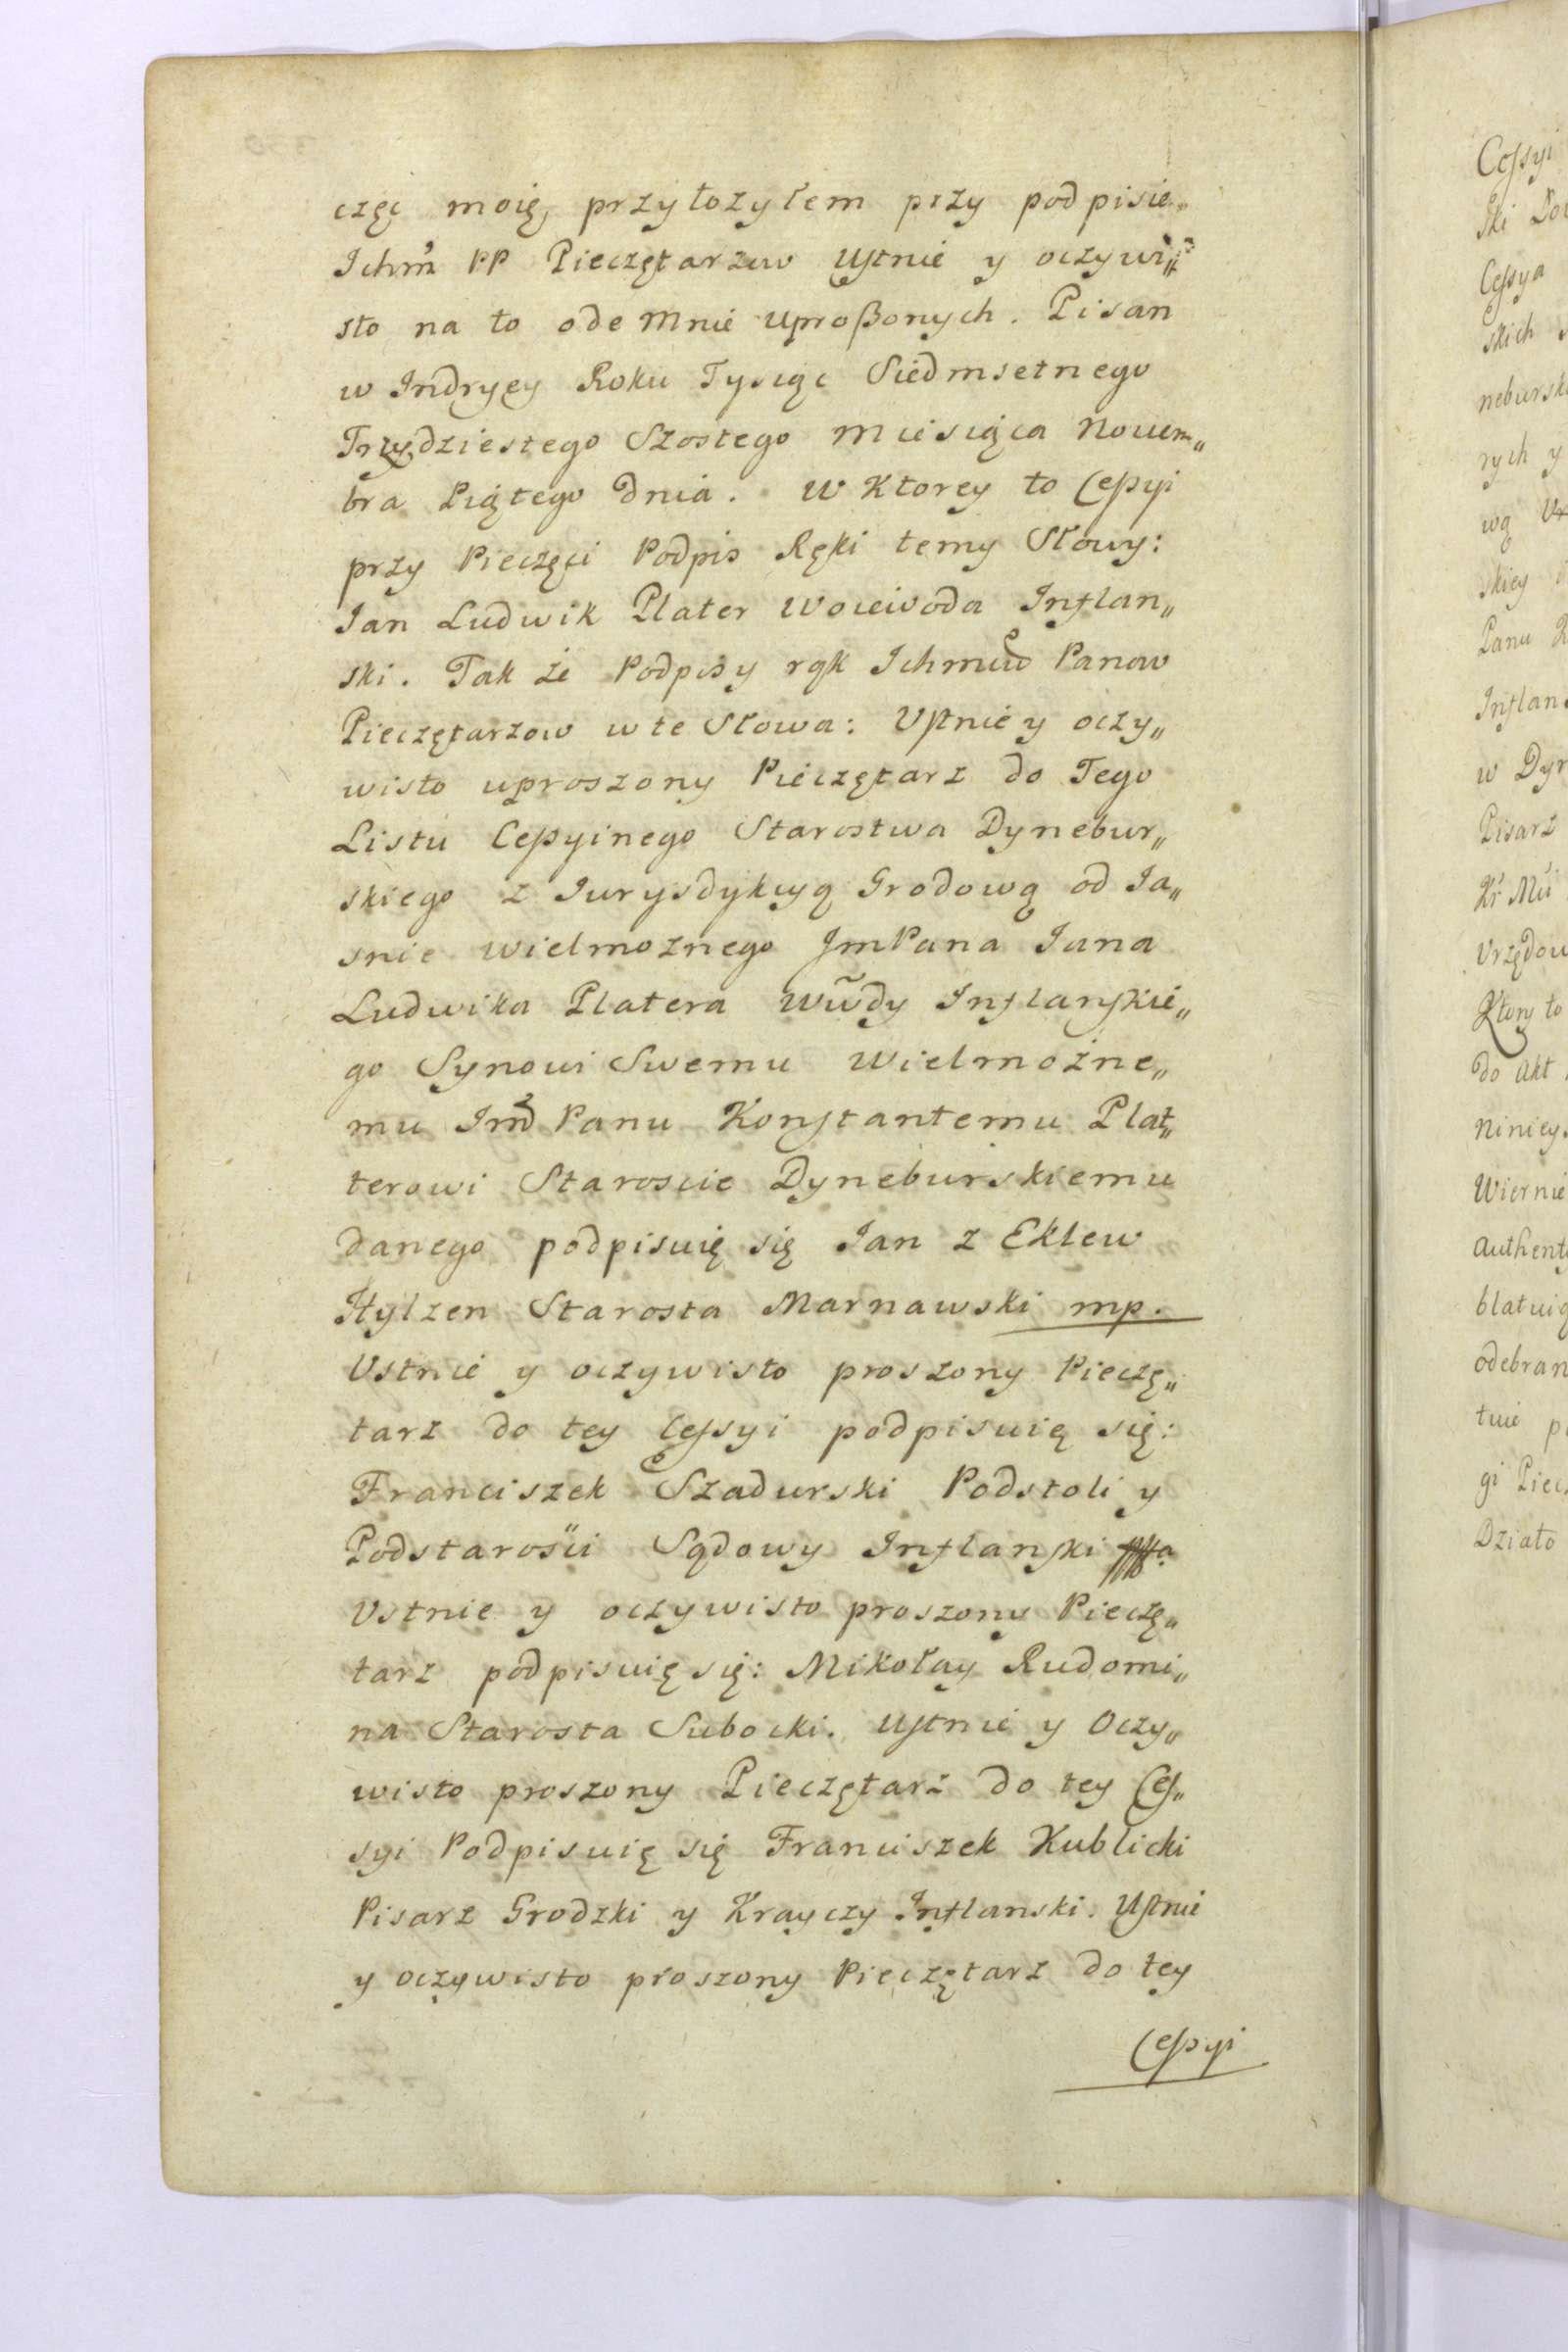 częć moię, przyłozyłem przy podpisie
Ichm PP Pieczętarzow Ustnie y oczywi„
sto na to ode Mnie uproßonych. Pisan
w Indrycy Roku Tysiąc Siedmsetnego
Trzydziestego Szostego Miesiąca Novem„
bra Piątego Dnia. W Ktorey to Cessyi
przy Pieczęci Podpis Ręki temy Słowy:
Ian Ludwik Plater Woiewoda Inflan„
ski. Tak że Podpisy rąk Ichmciow Panow
Pieczętarzow w te Słowa: Ustnie y oczy„
wisto uproszony Pieczętarz do Tego
Listu Cessyinego Starostwa Dynebur„
skiego z Iurysdykcyą Grodową od Ia„
snie Wielmoznego JmPana Iana
Ludwika Platera Wwdy Inflanskie„
go Synowi Swemu Wielmożne„
mu Imć Panu Konstantemu Plat„
terowi Staroscie Dyneburskiemu
danego podpisuię się Ian z Eklew
Hylzen Starosta Marnawski mp.
Ustnie y oczywisto proszony Pieczę„
tarz do tey Cessyi podpisuię się:
Franciszek Szadurski Podstoli y
Podstarosci Sądowy Inflanski
Ustnie y oczywisto proszony Pieczę„
tarz podpisuię się: Mikołay Rudomi„
na Starosta Subocki. Ustnie y Oczy„
wisto proszony Pieczętarz do tey Ces„
syi Podpisuię się Franciszek Kublicki
Pisarz Grodzki y Krayczy Inflanski. Ustnie
y oczywisto proszony Pieczętarz do tey
Cessyi
Cessyi
Cessya
skich
nebursk
rych y
wą
skiey
Panu
Inflan
w Dyn
Pisarz
Urzędow
Ktory to
do Akt
niniey
Wiernie
Authent
blatuią
odebran
gi Piec
Działo